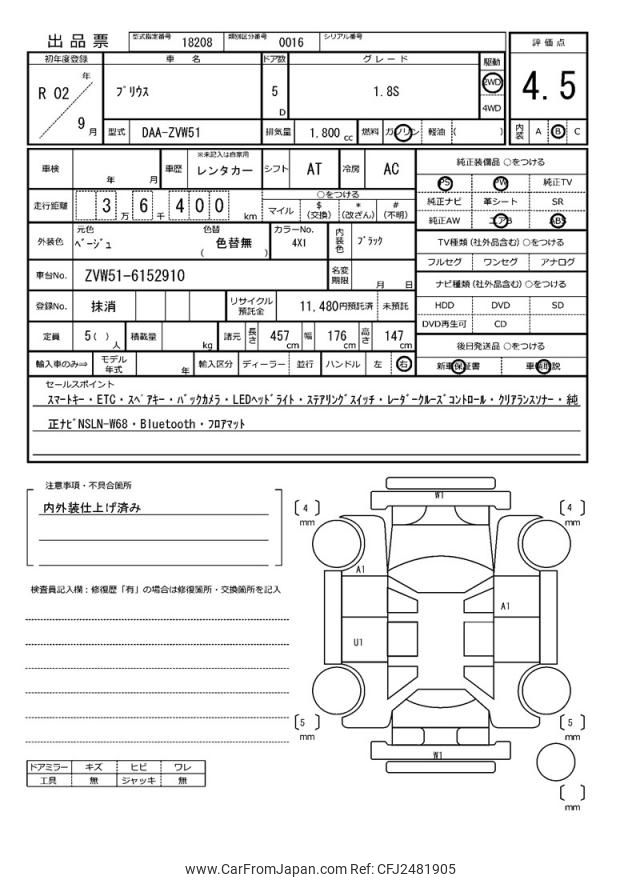 出品票
型式指定番号 18208 類別区分番号 0016 シリアル番号
初年度登録 車名 ドア数 グレード 駆動 評価点
R 02 年 9 月
プリウス 5 D 1.8S 2WD 4WD
4.5
型式 DAA-ZVW51 排気量 1.800 cc 燃料 ガソリン 軽油 ( )
内装 A B C
車検 年 月 車歴 ※未記入は自家用 レンタカー シフト AT 冷房 AC
純正装備品 ○をつける
PS PW 純正TV
走行距離 3 万 6 千 4 0 0 km
○をつける
マイル $(交換) *(改ざん) #(不明)
純正ナビ 革シート SR
純正AW エアB ABS
外装色 元色 ベージュ 色替 色替無 ( ) カラーNo. 4X1 内装色 ブラック
TV種類(社外品含む)○をつける
フルセグ ワンセグ アナログ
車台No. ZVW51-6152910 名変期限 月 日
ナビ種類(社外品含む)○をつける
登録No. 抹消 リサイクル預託金 11,480円預託済 未預託
HDD DVD SD
DVD再生可 CD
定員 5( )人 積載量 kg 諸元 長さ 457 cm 幅 176 cm 高さ 147 cm
後日発送品 ○をつける
輸入車のみ⇒ モデル年式 年 輸入区分 ディーラー 並行 ハンドル 左 右
新車保証書 車輌取説
セールスポイント
スマートキー・ETC・スペアキー・バックカメラ・LEDヘッドライト・ステアリングスイッチ・レーダークルーズコントロール・クリアランスソナー・純
正ナビNSLN-W68・Bluetooth・フロアマット
注意事項・不具合箇所
内外装仕上げ済み
検査員記入欄:修復歴「有」の場合は修復箇所・交換箇所を記入
W1
4 mm
4 mm
A1
A1
U1
5 mm
5 mm
W1
mm
ドアミラー キズ ヒビ ワレ
工具 無 ジャッキ 無
www.CarFromJapan.com Ref: CFJ2481905